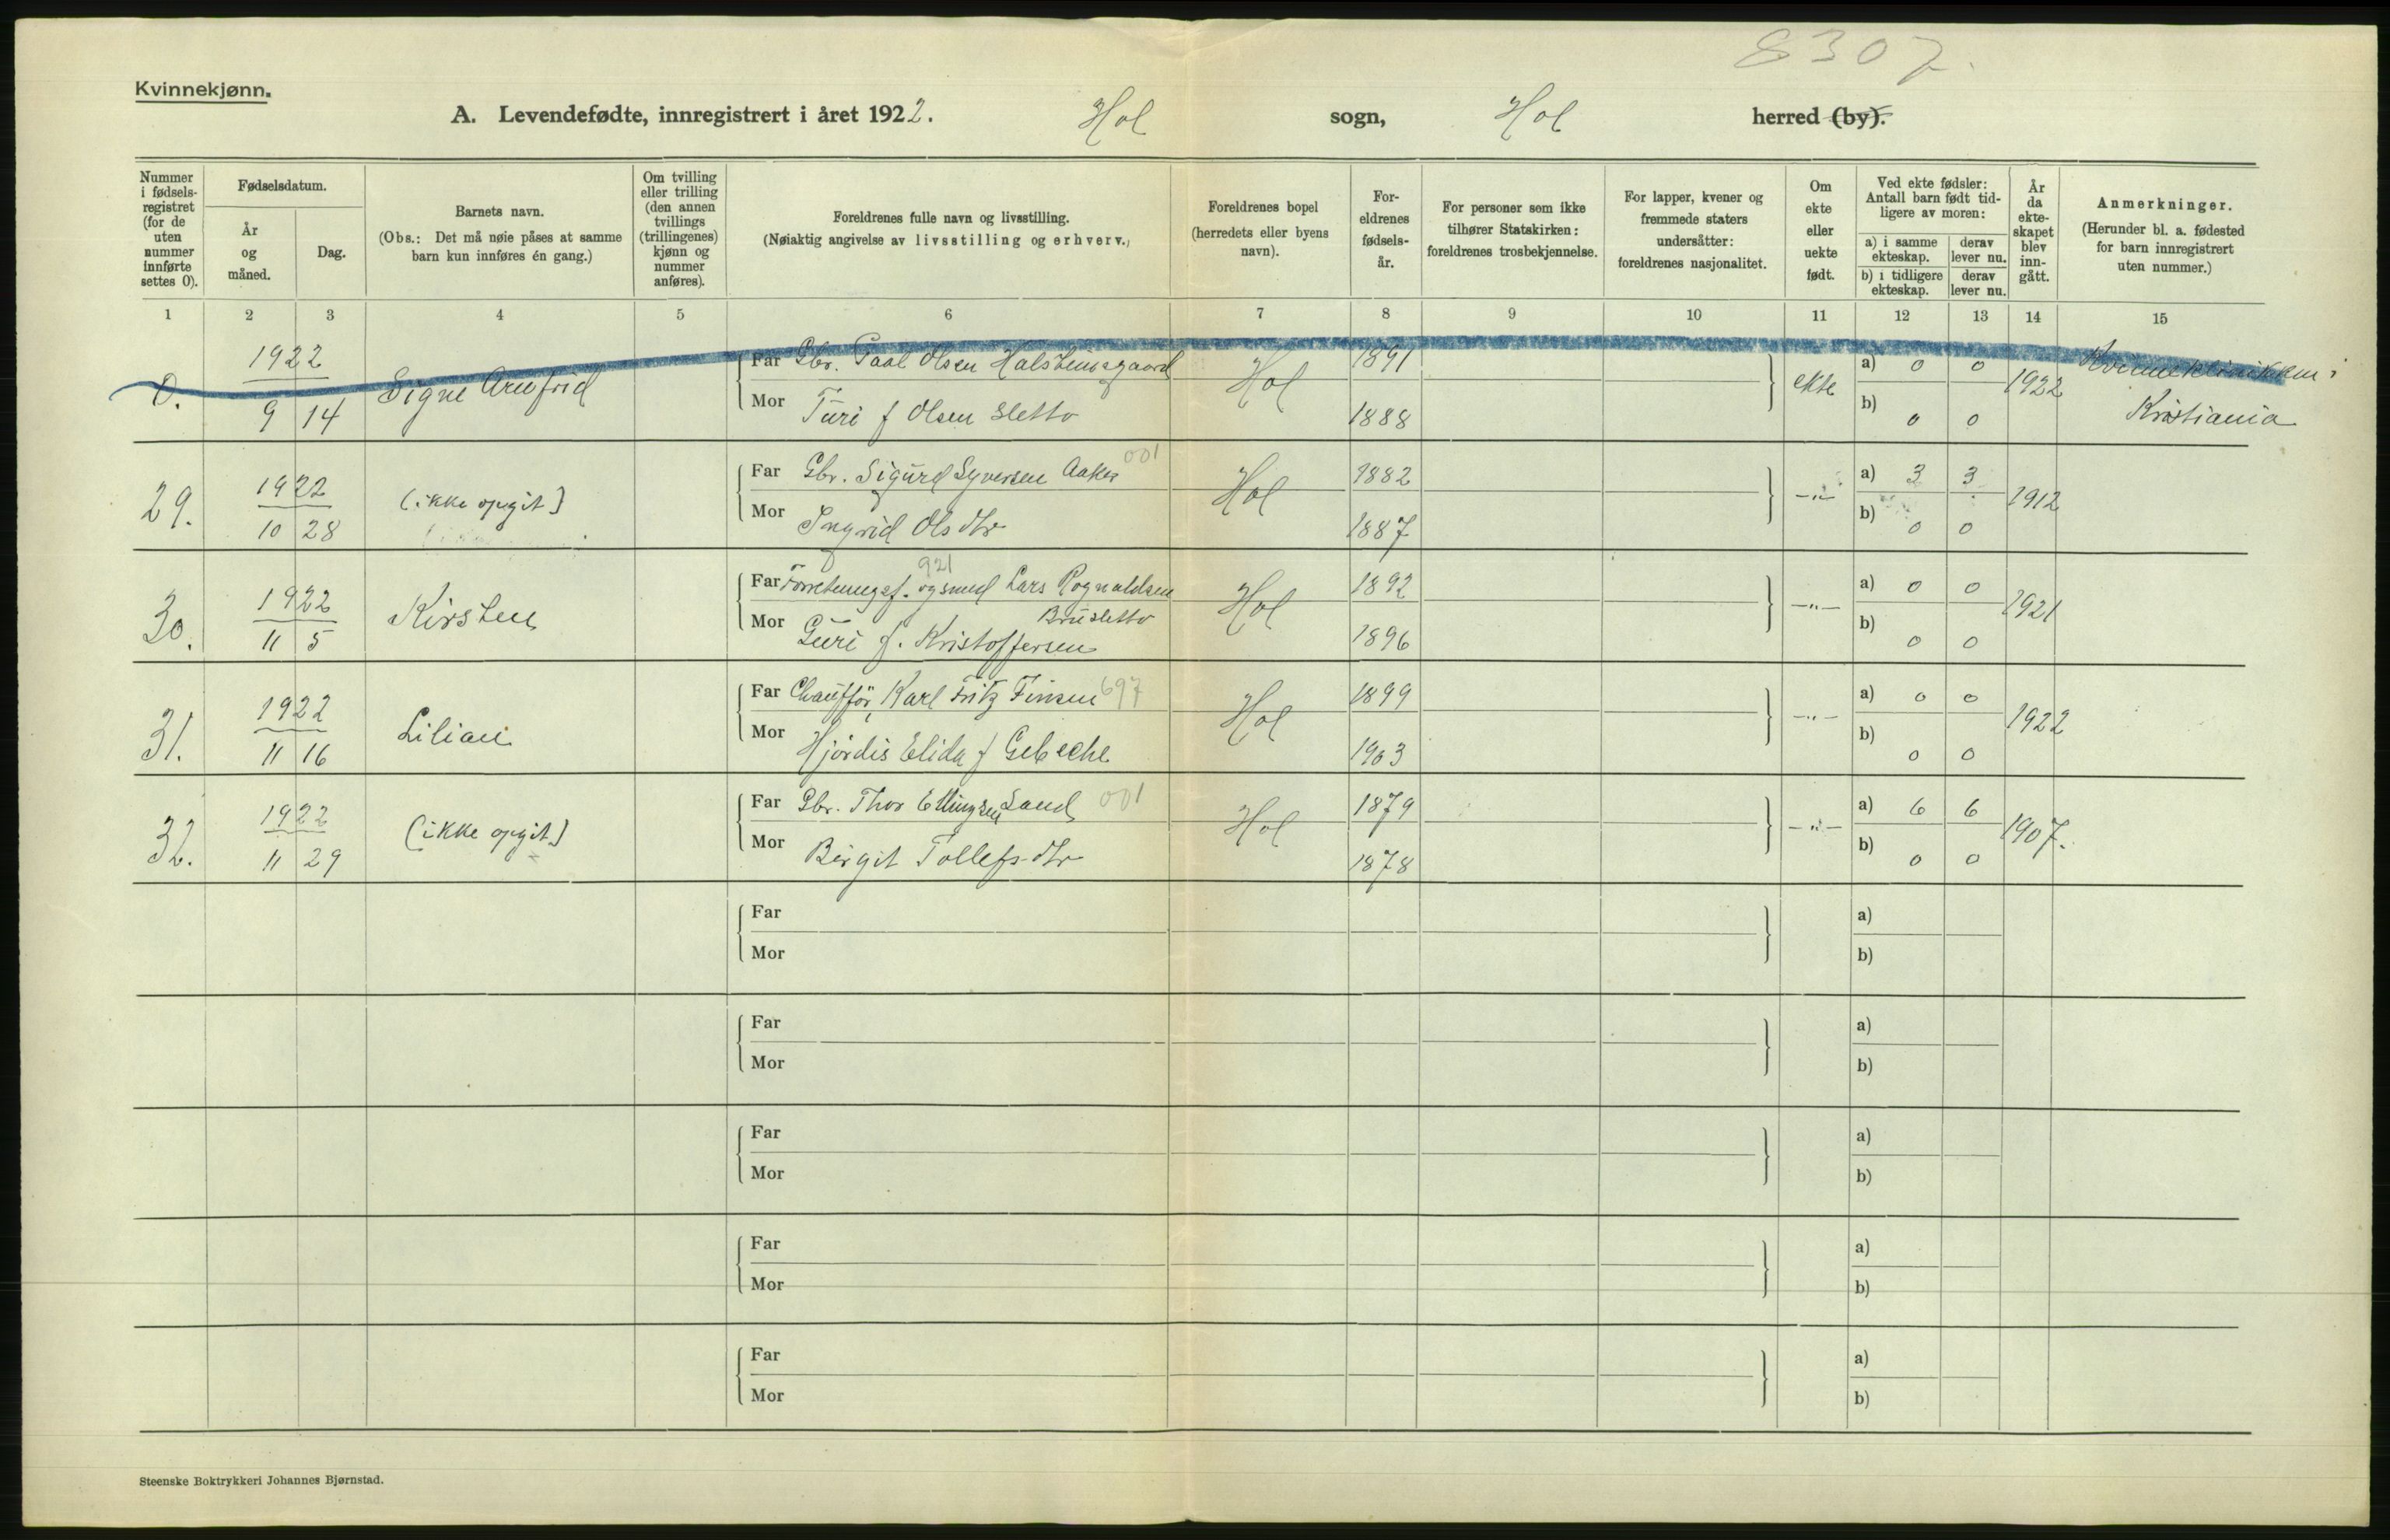 8307.
Kvinnekjønn.
A. Levendefødte, innregistrert i året 1922. Hol sogn, Hol herred (by).
Nummer i fødselsregistret (for de uten nummer innførte settes 0).
Fødselsdatum.
År og måned.
Dag.
Barnets navn.
(Obs.: Det må nøie påses at samme barn kun innføres én gang.)
Om tvilling eller trilling (den annen tvillings (trillingenes) kjønn og nummer anføres).
Foreldrenes fulle navn og livsstilling.
(Nøiaktig angivelse av livsstilling og erhverv.)
Foreldrenes bopel (herredets eller byens navn).
Foreldrenes fødselsår.
For personer som ikke tilhører Statskirken: foreldrenes trosbekjennelse.
For lapper, kvener og fremmede staters undersåtter: foreldrenes nasjonalitet.
Om ekte eller uekte født.
Ved ekte fødsler: Antall barn født tidligere av moren:
a) i samme ekteskap. derav lever nu.
b) i tidligere ekteskap. derav lever nu.
År da ekteskapet blev inngått.
Anmerkninger.
(Herunder bl. a. fødested for barn innregistrert uten nummer.)
1 2 3 4 5 6 7 8 9 10 11 12 13 14 15
0. 1922 9 14 Signe Arnfrid
Far Gbr. Paal Olsen Halsteinsgaard Hol 1891 ekte a) 0 0 1922 Kvinneklinikken i
Mor Turi f Olsen Sletto 1888 b) 0 0 Kristiania
29. 1922 10 28 (ikke opgit)
Far Gbr. Sigurd Syversen Aaker 001 Hol 1882 -"- a) 3 3 1912
Mor Ingrid Olsdtr 1887 b) 0 0
30. 1922 11 5 Kirsten
921
Far Lars Rognaldsen Brusletto Hol 1892 -"- a) 0 0 1921
Mor Guri f. Kristoffersen 1896 b) 0 0
31. 1922 11 16 Lilian
Far Chauffør Karl Fritz Finsen 697 Hol 1899 -"- a) 0 0 1922
Mor Hjørdis Elida f 1903 b) 0 0
32. 1922 11 29 (ikke opgit)
Far Gbr. Thor Ellingsen Sand 001 Hol 1879 -"- a) 6 6 1907.
Mor Birgit Tollefsdtr 1878 b) 0 0
Far a)
Mor b)
Far a)
Mor b)
Far a)
Mor b)
Far a)
Mor b)
Far a)
Mor b)
Steenske Boktrykkeri Johannes Bjørnstad.